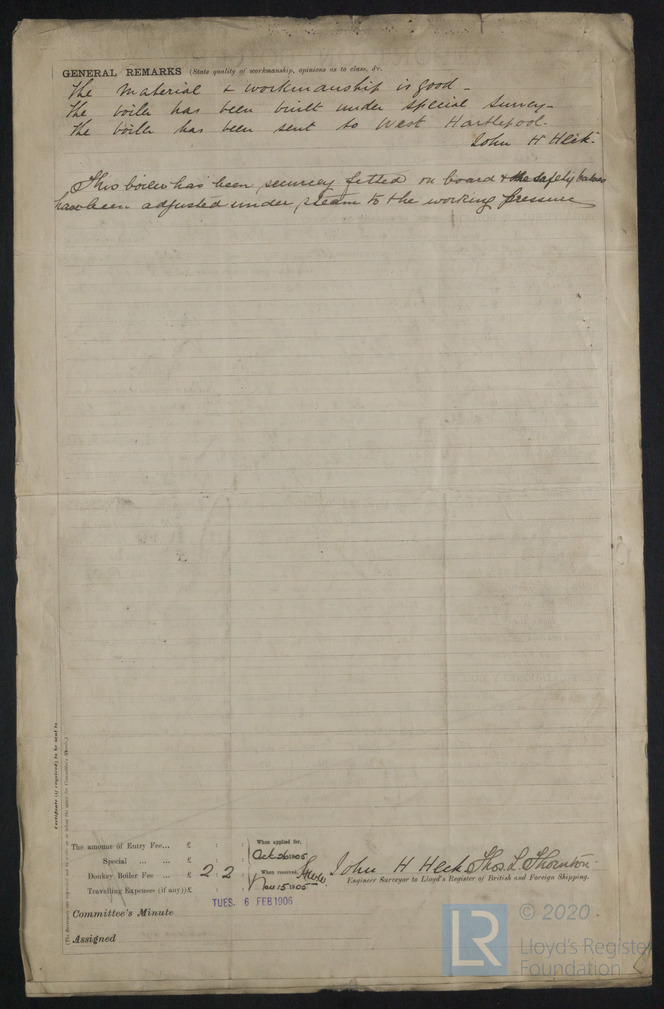 GENERAL REMARKS (State quality of workmanship, opinions as to class, &c.
The material & workmanship is good -
The boiler has been built under special survey -
The boiler has been sent to West Hartlepool.
John H Heck.
This boiler has been securely fitted on board & the safety valves
have been adjusted under steam to the working pressure
Certificate (if required) to be sent to
The amount of Entry Fee... £ : :
Special ... ... £ : :
Donkey Boiler Fee ... £ 2 : 2 :
Travelling Expenses (if any) £ : :
When applied for,
Oct 26 1905
When received,
Nov 15 1905
John H Heck Thos. L. Thornton
Engineer Surveyor to Lloyd's Register of British and Foreign Shipping.
TUES. 6 FEB 1906
Committee's Minute
Assigned
LR © 2020
Lloyd's Register
Foundation